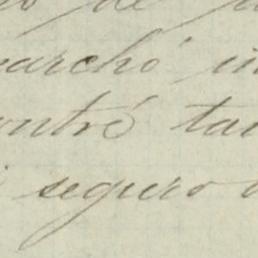 de
marchó
ontré ta
seguro